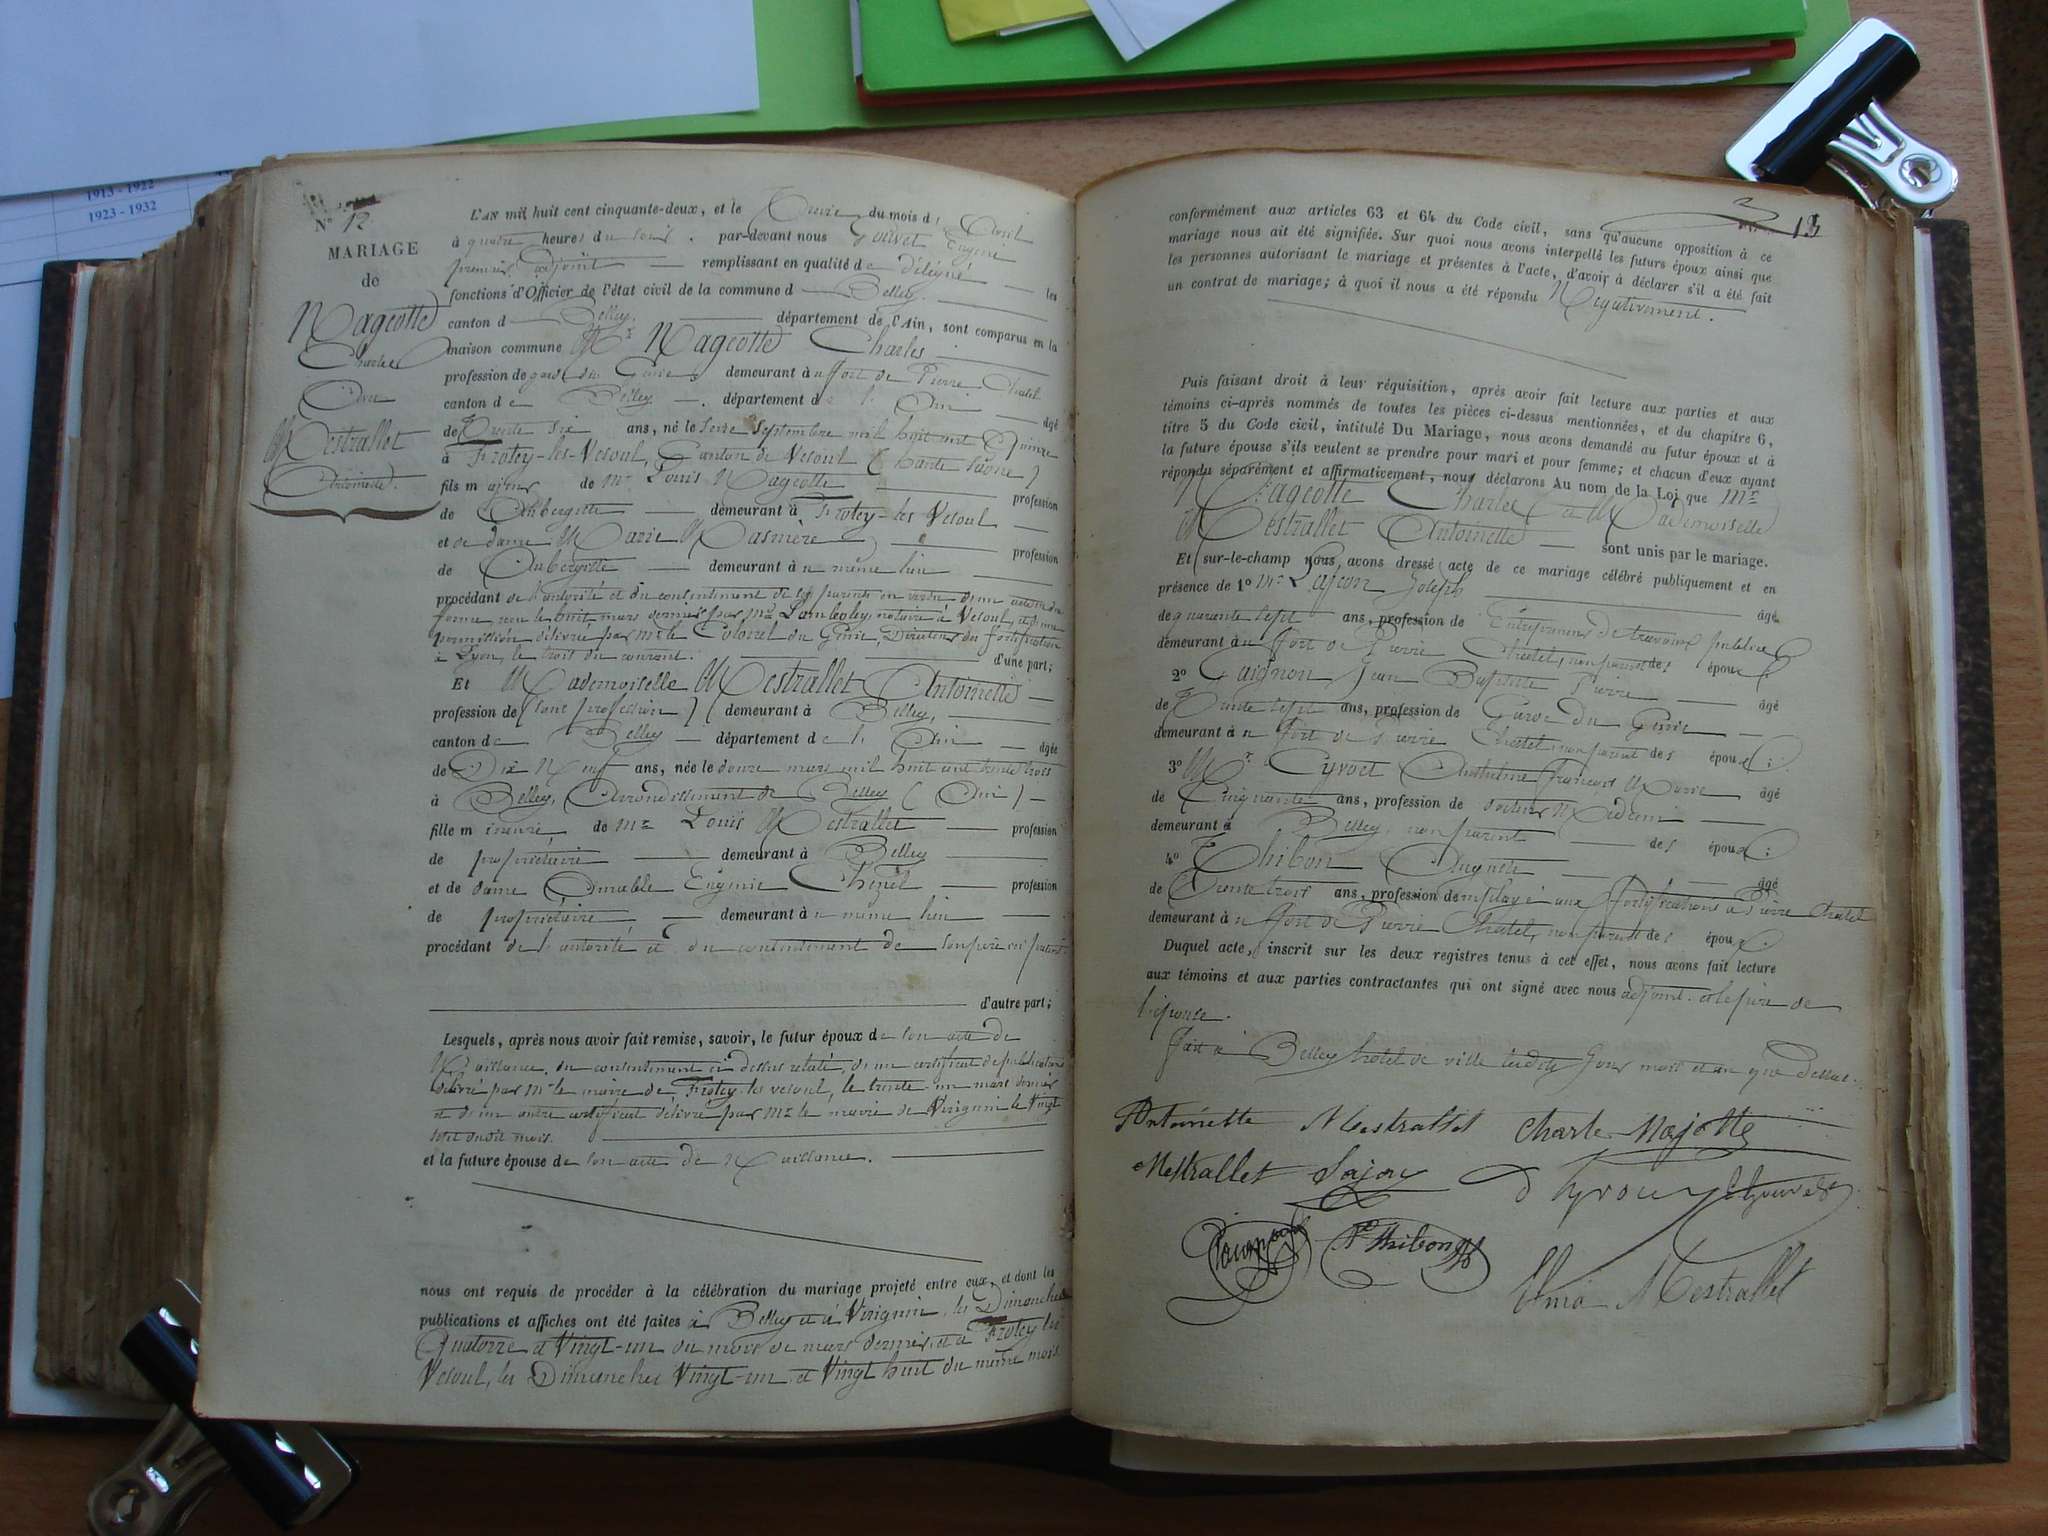 1913 - 1922
1923 - 1932
N° 12
MARIAGE
de
Nageotte
Charles
Avec
Mestrallet
Antoinette.
L'AN mil huit cent cinquante-deux, et le Treize du mois d'Avril
à quatre heures du soir. par-devant nous Gouvet Eugène
premier adjoint remplissant en qualité de délégué les
fonctions d'Officier de l'état civil de la commune d Belley.
canton d Belley. département de l'Ain, sont comparus en la
maison commune Mr Nageotte Charles
profession de garde du Génie, demeurant au fort de Pierre Chatel
canton de Belley département de l'Ain âgé
de Trente six ans, né le seize Septembre mil huit cent Quinze
à Frotey-les-Vesoul, Canton de Vesoul (haute Saône)
fils majeur de Mr Louis Nageotte profession
de Aubergiste demeurant à Frotey-les Vesoul
et de dame Marie Masnière profession
de Aubergiste demeurant au même lieu
procédant de l'autorité et du consentement de ses parents en vertu d'un acte en
forme, reçu le huit mars dernier par Me Lamboley, notaire à Vesoul, et d'une
permission délivrée par Mr le Colonel du Génie, Directeur des fortifications
à Lyon, le trois du courant. d'une part;
Et Mademoiselle Mestrallet Antoinette
profession de (sans profession) demeurant à Belley,
canton de Belley département de l'Ain âgée
de Dix Neuf ans, née le douze mars mil huit cent trente trois
à Belley, Arrondissement de Belley (Ain)
fille mineure de Mr Louis Mestrallet profession
de propriétaire demeurant à Belley
et de dame Aimable Eugénie Chenel profession
de propriétaire demeurant au même lieu
procédant de l'autorité et du consentement de son père ici présent
d'autre part;
Lesquels, après nous avoir fait remise, savoir, le futur époux de son acte de
Naissance, du consentement ci dessus relaté, d'un certificat de publication
délivré par Mr le maire de Frotey-les vesoul, le trente-un mars dernier
et d'un autre certificat délivré par Mr le maire de Virignin le Vingt
sept dudit mois.
et la future épouse de son acte de Naissance.
nous ont requis de procéder à la célébration du mariage projeté entre eux, et dont les
publications et affiches ont été faites à Belley et à Virignin, les Dimanches
Quatorze et Vingt-un du mois de mars dernier, et à Frotey les
Vesoul, les Dimanches Vingt-un et Vingt huit du même mois.
13
conformément aux articles 63 et 64 du Code civil, sans qu'aucune opposition à ce
mariage nous ait été signifiée. Sur quoi nous avons interpellé les futurs époux ainsi que
les personnes autorisant le mariage et présentes à l'acte, d'avoir à déclarer s'il a été fait
un contrat de mariage; à quoi il nous a été répondu Négativement.
Puis faisant droit à leur réquisition, après avoir fait lecture aux parties et aux
témoins ci-après nommés de toutes les pièces ci-dessus mentionnées, et du chapitre 6,
titre 5 du Code civil, intitulé Du Mariage, nous avons demandé au futur époux et à
la future épouse s'ils veulent se prendre pour mari et pour femme; et chacun d'eux ayant
répondu séparément et affirmativement, nous déclarons Au nom de la Loi que Mr
Nageotte Charles et Mademoiselle
Mestrallet Antoinette sont unis par le mariage.
Et sur-le-champ nous avons dressé acte de ce mariage célébré publiquement et en
présence de 1° Mr Lajon Joseph âgé
de quarante sept ans, profession de Entrepreneur de travaux publics
demeurant au fort de Pierre Châtel, non parent des époux;
2° Jean Baptiste Pierre âgé
de Trente sept ans, profession de Garde du Génie
demeurant au fort de Pierre Châtel, non parent des époux;
3° Mr Cyvoct Anthelme françois Marie âgé
de Cinquante ans, profession de docteur Médecin
demeurant à Belley, non parent des époux;
4° Thibon Auguste âgé
de Trente trois ans, profession de employé aux fortifications à Pierre Châtel
demeurant au fort de Pierre Châtel, non parent des époux.
Duquel acte, inscrit sur les deux registres tenus à cet effet, nous avons fait lecture
aux témoins et aux parties contractantes qui ont signé avec nous adjoint et le père de
l'épouse.
Fait à Belley hôtel de ville lesdits jour mois et an que dessus.
Antoinette Mestrallet Charle Najotte
Mestrallet Lajon
Thibon
Elma Mestrallet